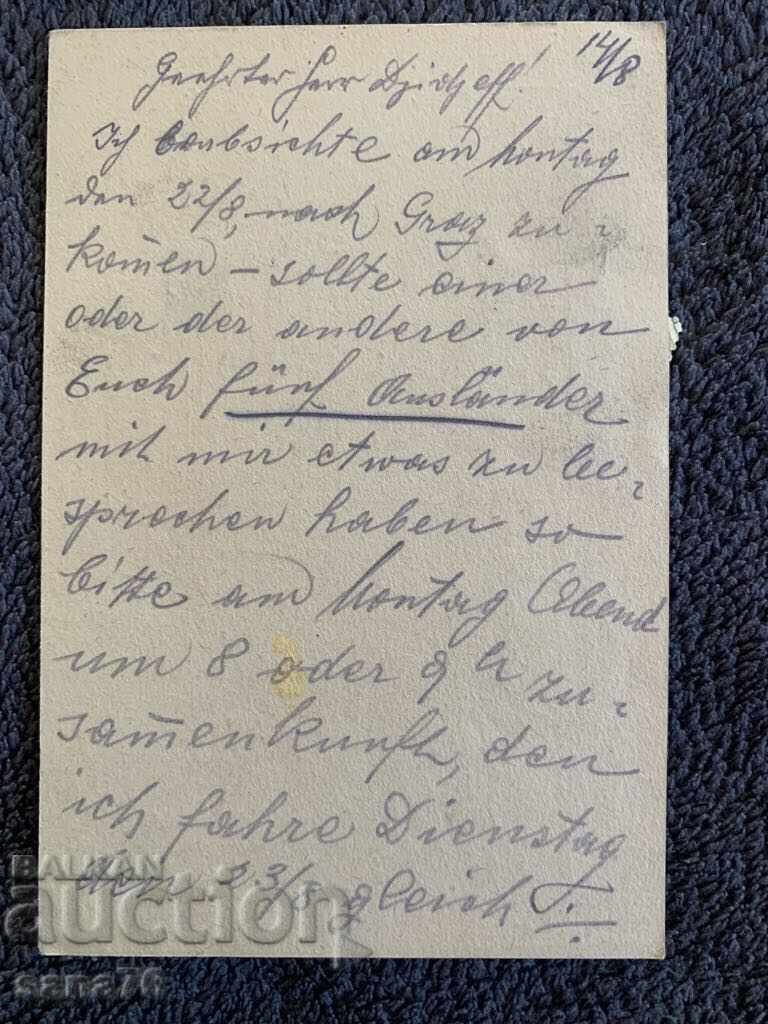 14/8
Geehrter Herr Djidjeff!
Ich beabsichte am Montag
den 22/8, nach Graz zu-
kom̄en – sollte einer
oder der andere von
Euch fünf Ausländer
mit mir etwas zu be-
sprechen haben so
bitte am Montag Abend
um 8 oder 9 h zu-
sam̄enkunft, den
ich fahre Dienstag
den 23/8 gleich
BALKAN
auction
sana76